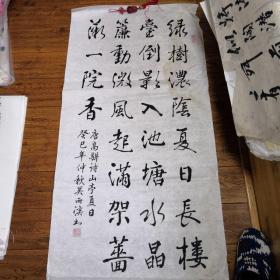 緑樹濃陰夏日長樓
臺倒影入池塘水晶
簾動微風起滿架薔
薇一院香
唐高駢詩山亭夏日
癸巳年仲秋吴雨